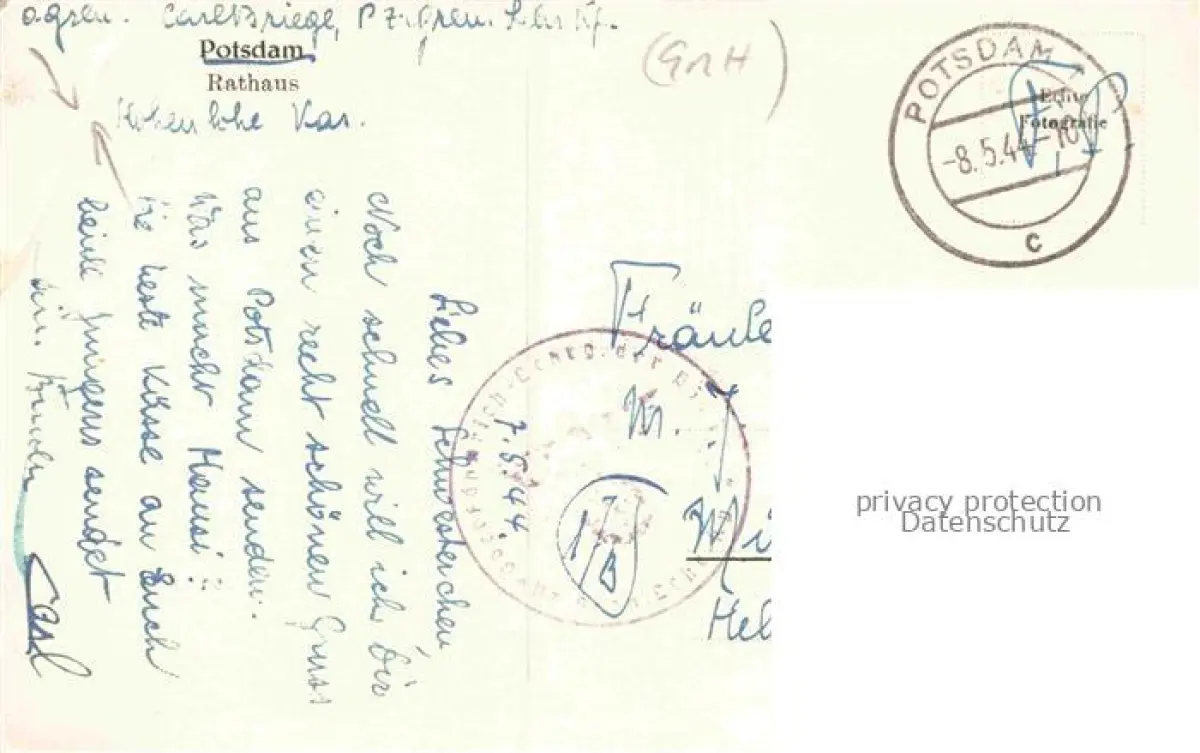 Carl Briege, Pz. Gren.
Potsdam
Rathaus
Hohenlohe Kas.
(GnH)
POTSDAM
-8.5.44-10
c
Echte
Fotografie
7.5.44.
Liebes Schwesterchen,
Noch schnell will ich Dir
einen recht schönen Gruss
aus Potsdam senden.
Was macht Mausi?
Die beste Küsse an Euch
beide Jungens sendet
Carl
Fräule
M.
17
B
Mü
Hel
privacy protection
Datenschutz